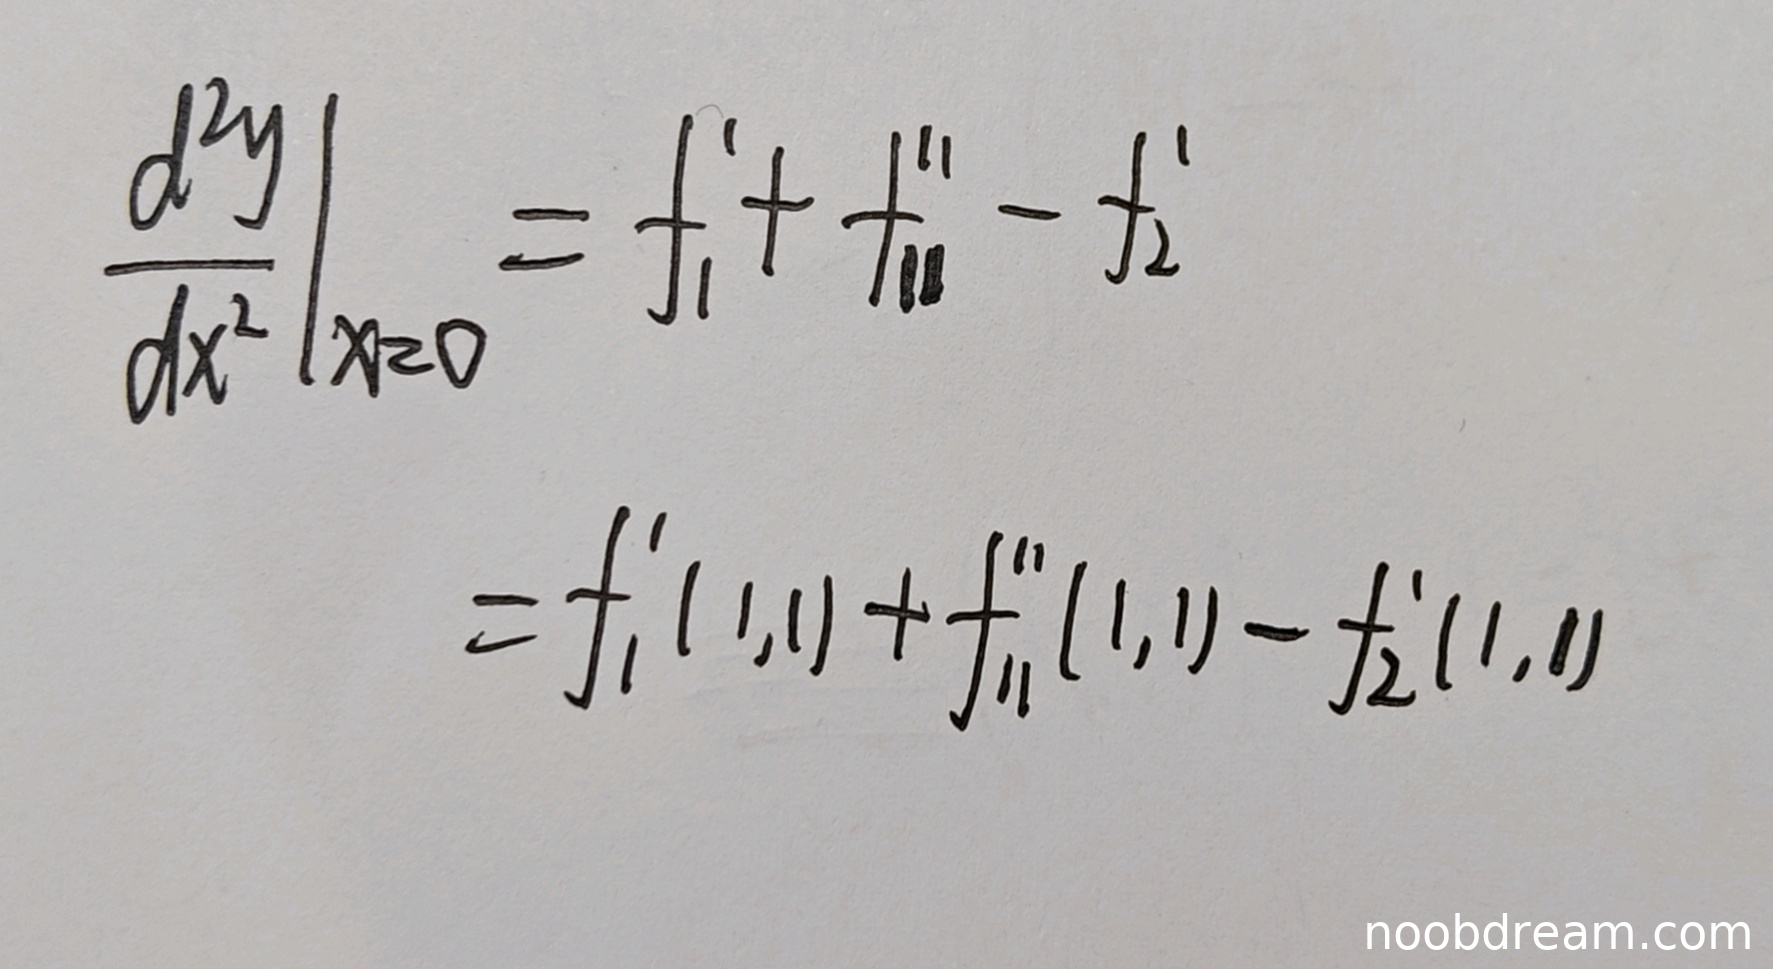 $\left.\frac{d^2y}{dx^2}\right|_{x=0} = f_1' + f_{11}'' - f_2'$
$= f_1'(1,1) + f_{11}''(1,1) - f_2'(1,1)$
noobdream.com